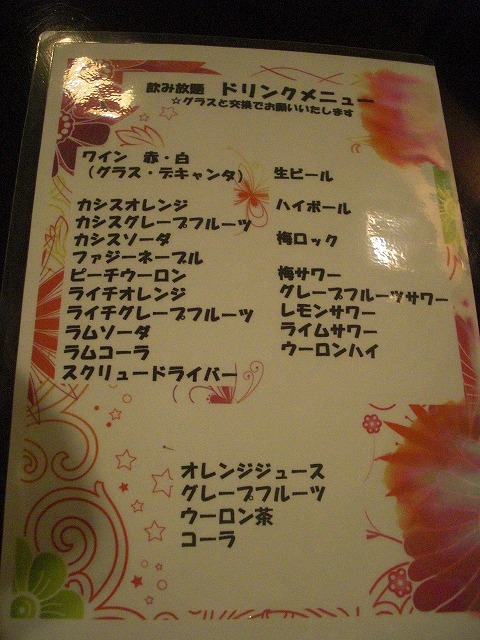 飲み放題 ドリンクメニュー
☆グラスと交換でお願いいたします
ワイン 赤・白
(グラス・デキャンタ)
カシスオレンジ
カシスグレープフルーツ
カシスソーダ
ファジーネーブル
ピーチウーロン
ライチオレンジ
ライチグレープフルーツ
ラムソーダ
ラムコーラ
スクリュードライバー
生ビール
ハイボール
梅ロック
梅サワー
グレープフルーツサワー
レモンサワー
ライムサワー
ウーロンハイ
オレンジジュース
グレープフルーツ
ウーロン茶
コーラ